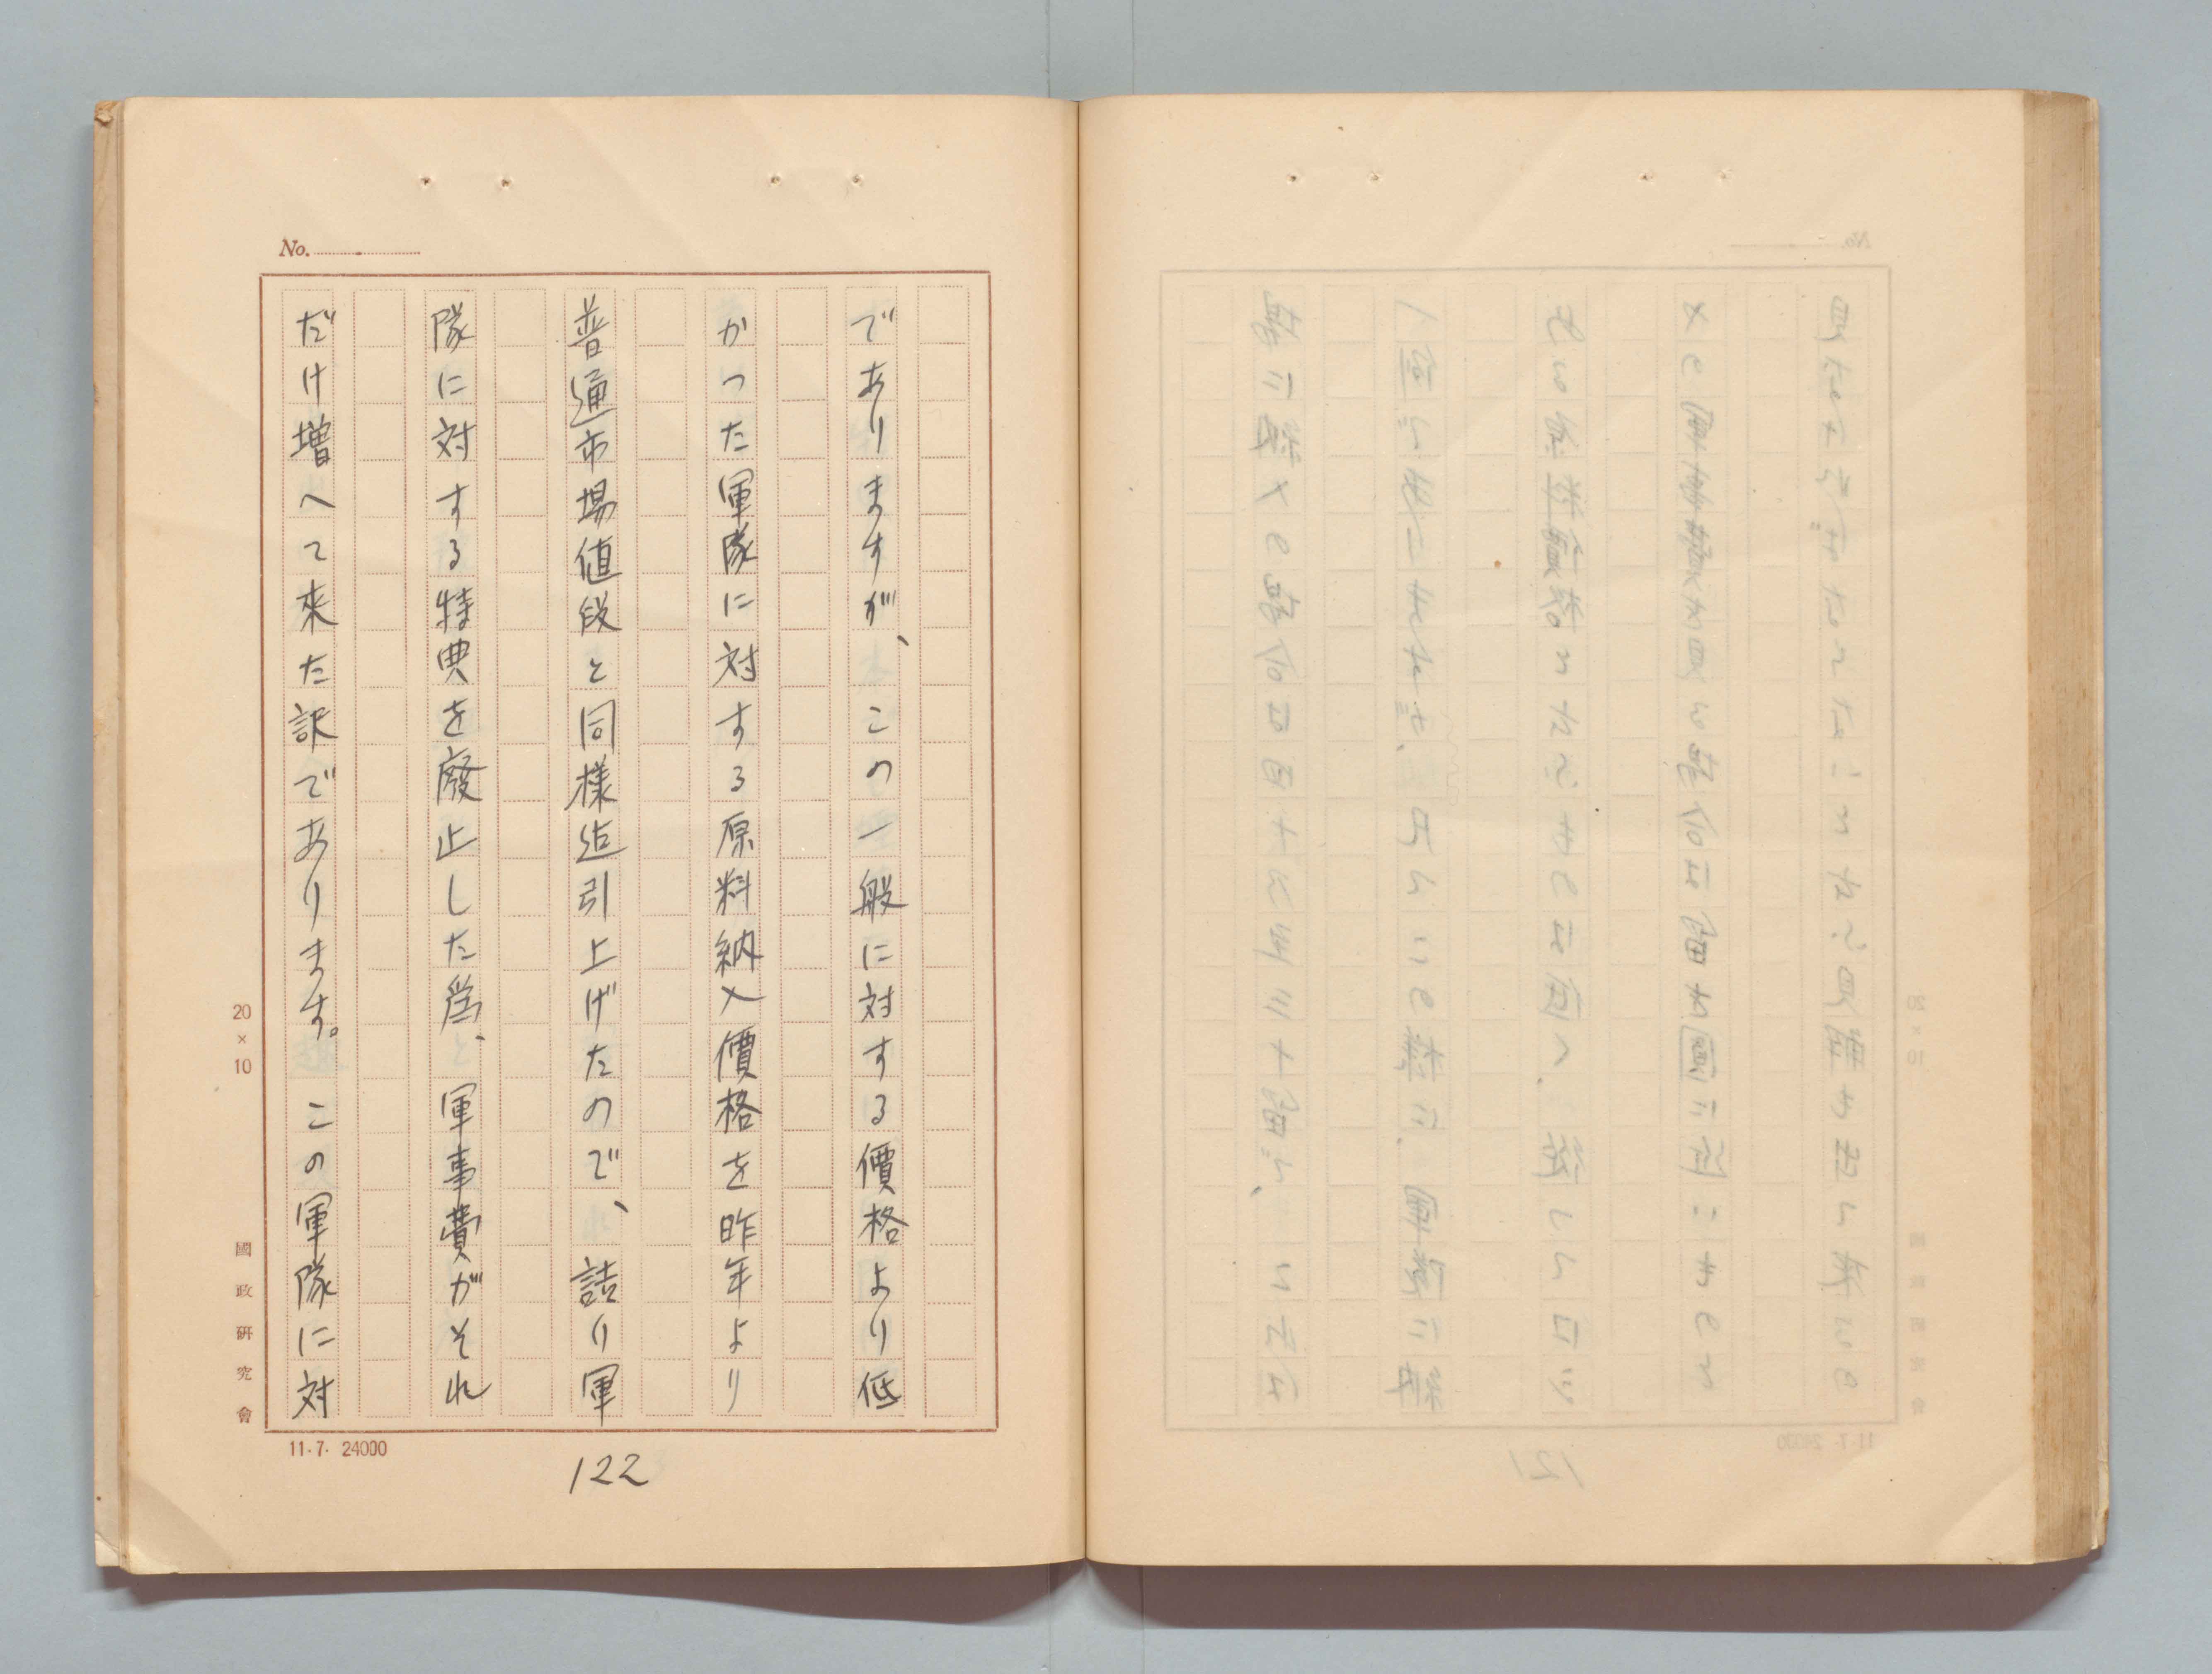 No.
でありますが、この一般に対する價格より低
かった軍隊に対する原料納入價格を昨年より
普通市場値段と同様迄引上げたので、詰り軍
隊に対する特典を廢止した爲、軍事費がそれ
だけ増へて来た訳であります。この軍隊に対
20×10
國政研究會
11.7. 24000
122